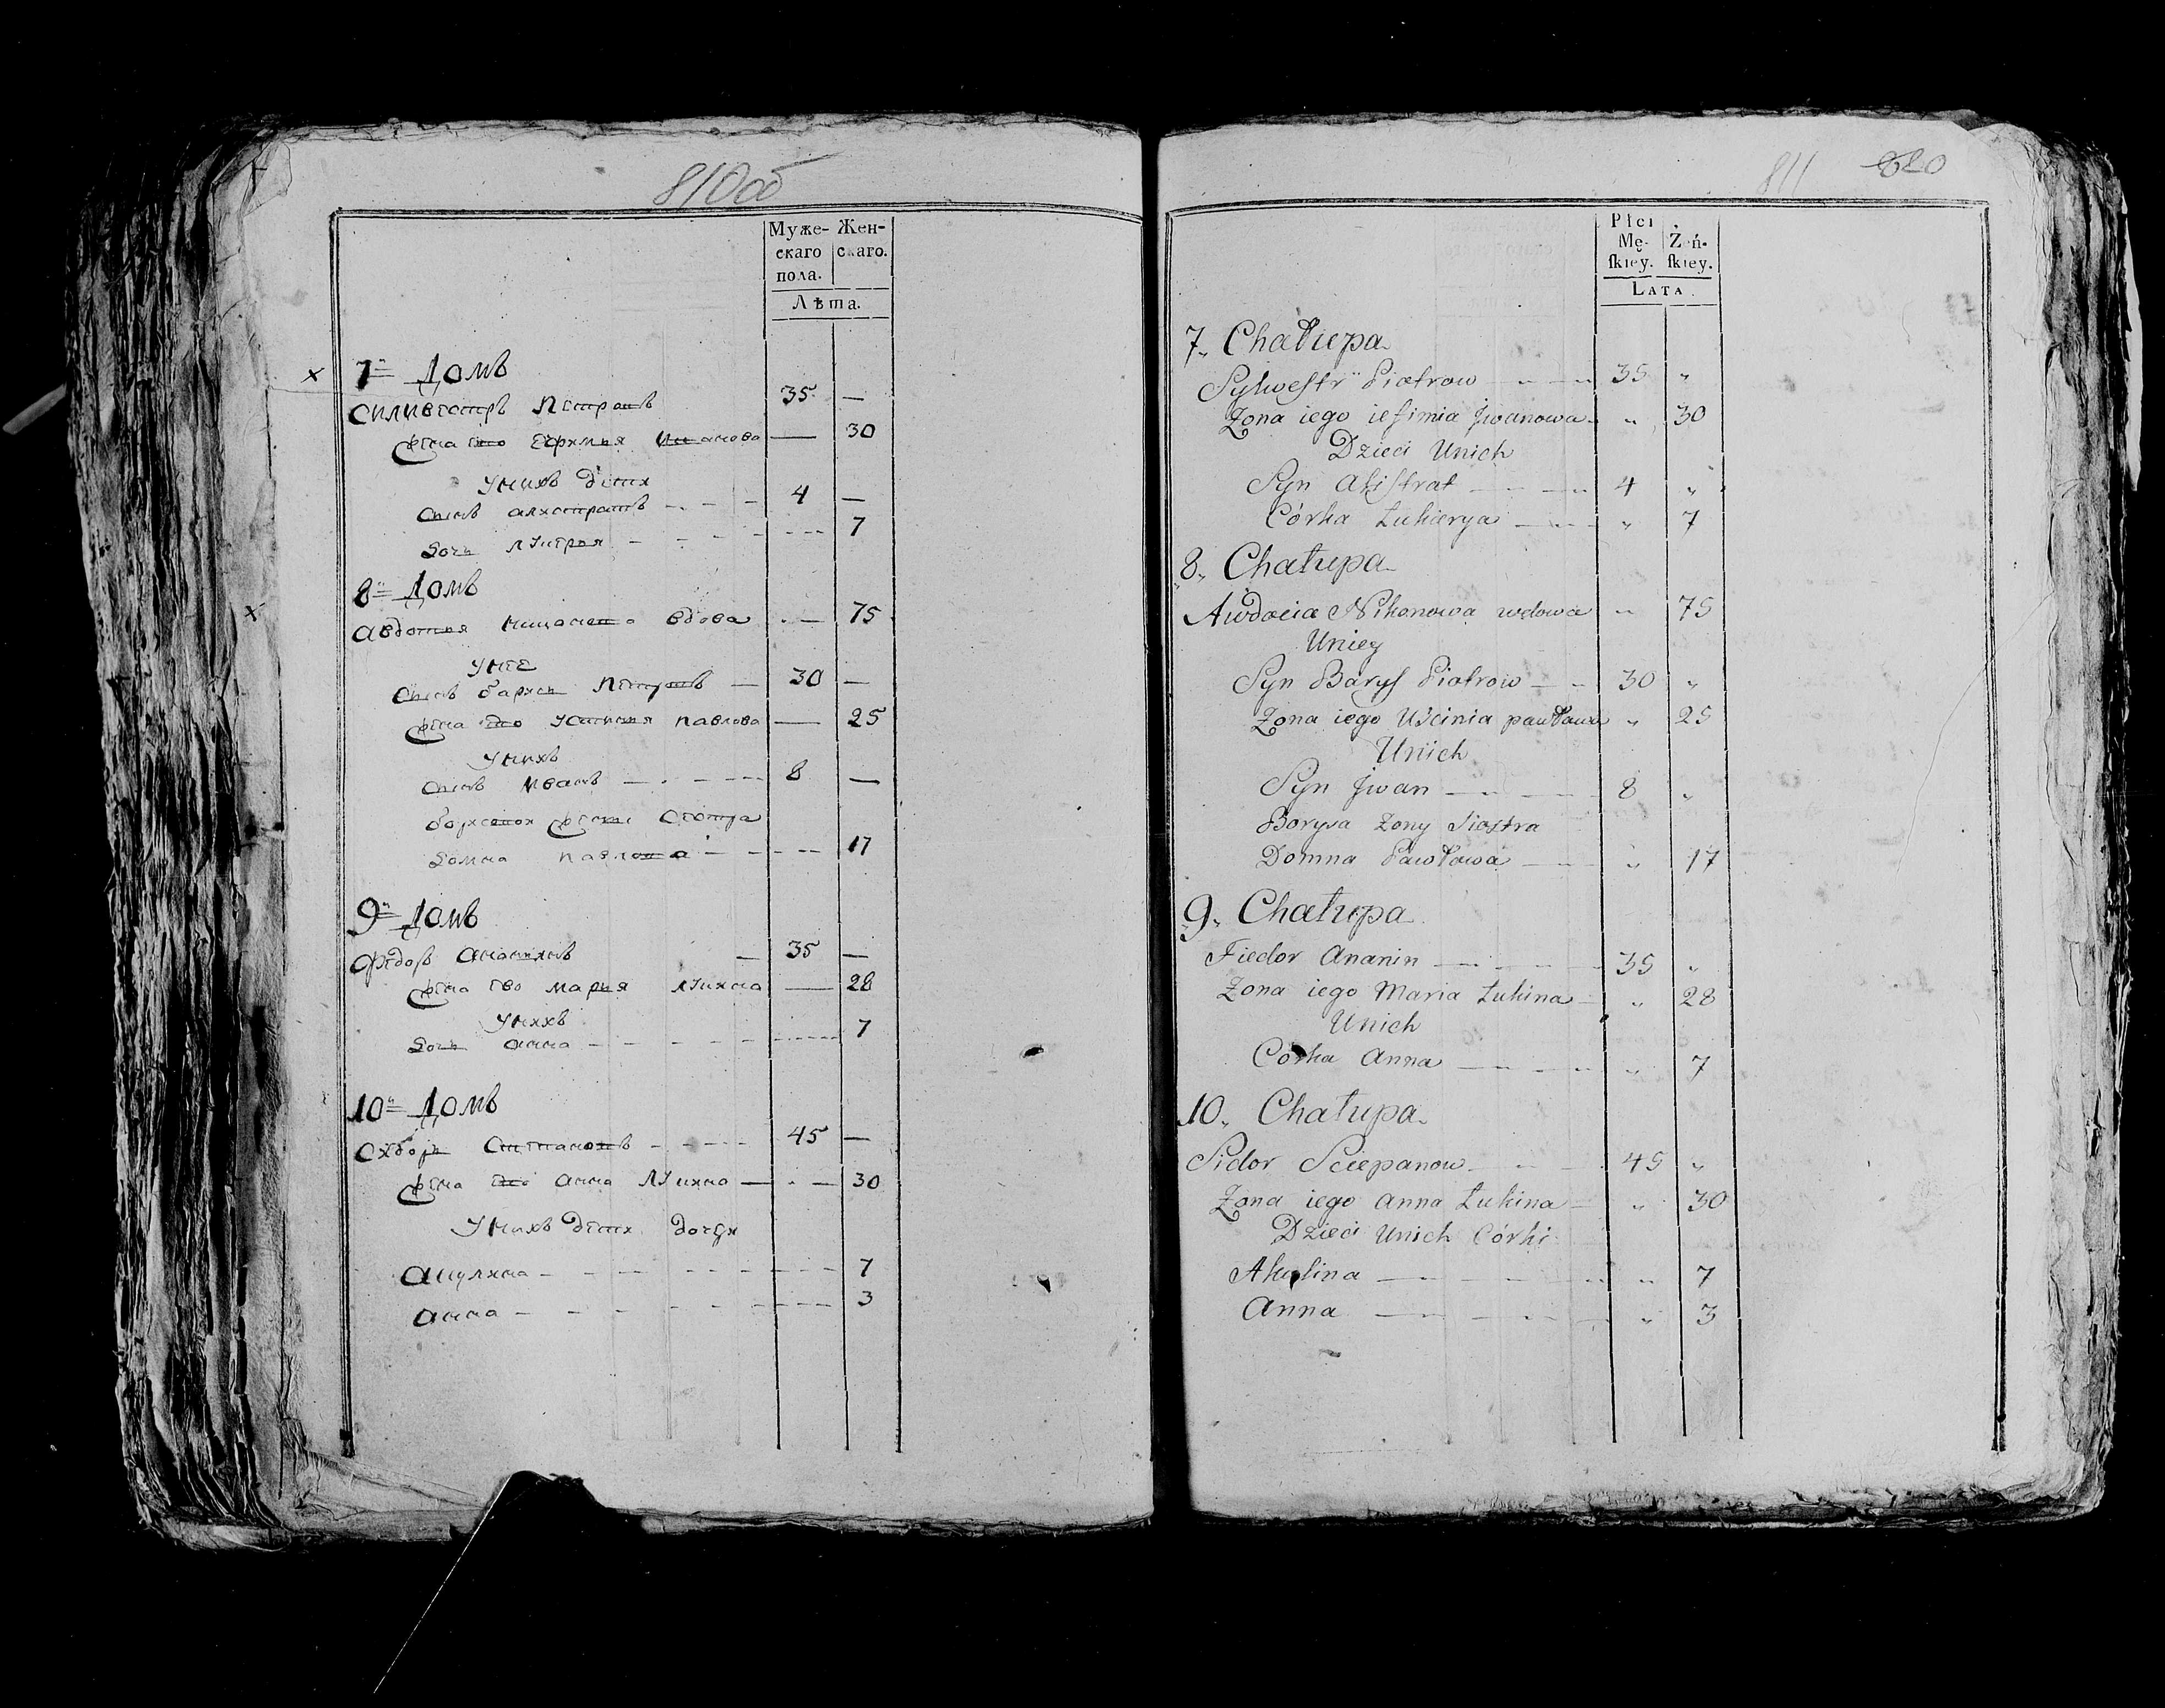 810об
Муже- Жен-
скаго скаго.
пола.
Лѣта.
7й Домъ
Силивестръ Петровъ 35 —
жена ево Ефимья Иванова — 30
у нихъ дети
сынъ алистратъ 4 —
дочь лукерья 7
8й Домъ
авдотья никонова вдова — 75
у нее
сынъ барисъ Петровъ 30 —
жена ево устинья павлова — 25
у нихъ
сынъ иванъ 8 —
борисовой жены сестра
домна павлова 17
9й Домъ
Федоръ ананинъ 35 —
жена ево марья лукина — 28
у нихъ
дочь анна 7
10й Домъ
Сидоръ степановъ 45 —
жена ево анна лукина — 30
у нихъ дети дочери
акулина 7
анна 3
811 820
Płci
Mę- Żeń-
ſkiey. ſkiey.
LATA.
7. Chałupa
Sylwestr Piotrow 35 "
Zona iego iefimia Jwanowa " 30
Dzieci Unich
Syn Alistrat 4 "
Córka Łukierya " 7
8. Chałupa
Awdocia Nikonowa wdowa " 75
Uniey
Syn Barys Piotrow 30 "
Zona iego Uścinia pawłowa " 25
Unich
Syn Jwan 8 "
Borysa Zony Siostra
Domna Pawłowa " 17
9. Chałupa
Fiedor Ananin 35 "
Zona iego Maria Łukina " 28
Unich
Córka Anna " 7
10. Chałupa
Sidor Sciepanow 45 "
Zona iego Anna Łukina " 30
Dzieci Unich Córki
Akulina " 7
Anna " 3